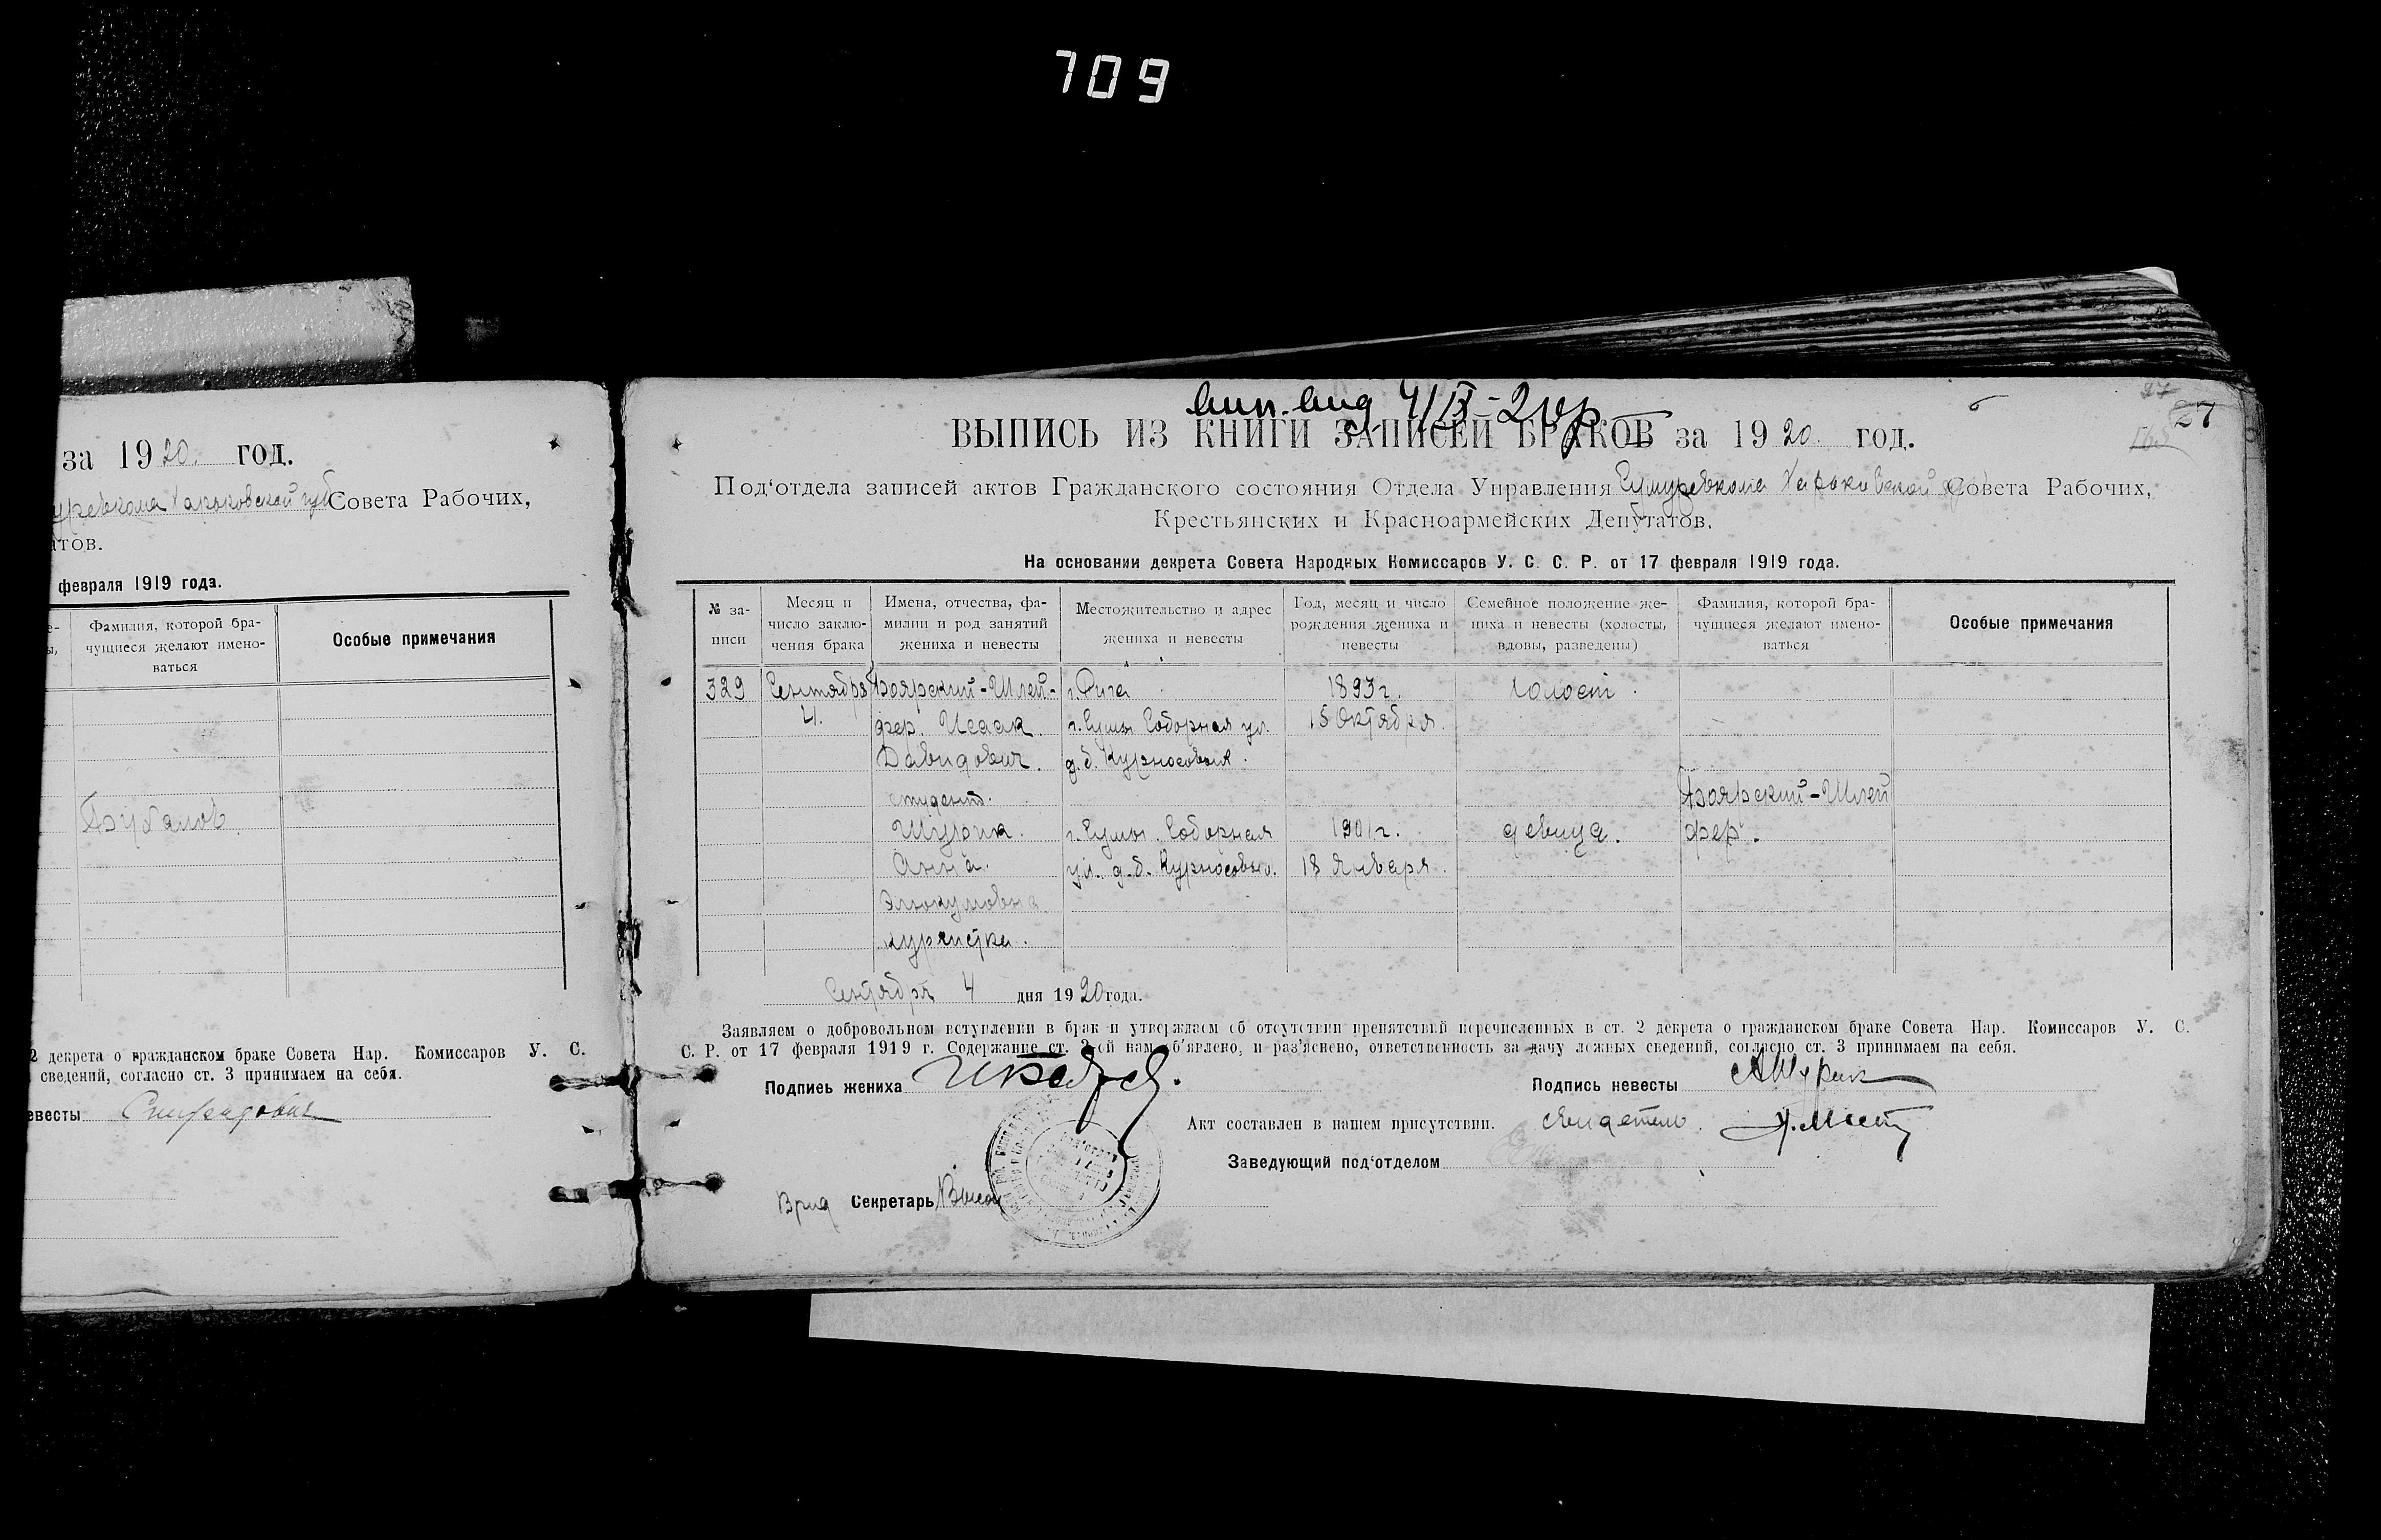 709
за 1920 год.
Харьковской губ Совета Рабочих,
тов.
февраля 1919 года.
Фамилия, которой бра-
чущиеся желают имено-
ваться
Особые примечания
2 декрета о гражданском браке Совета Нар. Комиссаров У. С.
сведений, согласно ст. 3 принимаем на себя.
евесты
27
27
вып. выд 4/IX - 20 г
ВЫПИСЬ ИЗ КНИГИ ЗАПИСЕЙ БРАКОВ за 1920 год.
Под‘отдела записей актов Гражданского состояния Отдела Управления Сумуревкома Харьковской губ Совета Рабочих,
Крестьянских и Красноармейских Депутатов.
На основании декрета Совета Народных Комиссаров У. С. С. Р. от 17 февраля 1919 года.
№ за-
писи
Месяц и
число заклю-
чения брака
Имена, отчества, фа-
милии и род занятий
жениха и невесты
Местожительство и адрес
жениха и невесты
Год, месяц и число
рождения жениха и
невесты
Семейное положение же-
ниха и невесты (холосты,
вдовы, разведены)
Фамилия, которой бра-
чущиеся желают имено-
ваться
Особые примечания
329 Сентября Боярский-Шлей- г. Рига 1893 г. холост
4. фер. Исаак г. Сумы Соборная ул. 15 Октября
Давидович. д. б. Курносовых.
студент. Боярский-Шлей
Шурик. г. Сумы. Соборная 1901 г. девица. фер.
Анна. ул. д. б. Курносовых. 18 Января.
Элюкумовна
курсистка.
Сентября 4 дня 1920 года.
Заявляем о добровольном вступлении в брак и утверждаем об отсутствии препятствий перечисленных в ст. 2 декрета о гражданском браке Совета Нар. Комиссаров У. С.
С. Р. от 17 февраля 1919 г. Содержание ст. 2-ой нам об‘явлено, и раз‘яснено, ответственность за дачу ложных сведений, согласно ст. 3 принимаем на себя.
Подпись жениха
Подпись невесты АШурик
Акт составлен в нашем присутствии. свидетель.
Заведующий под‘отделом
Врид Секретарь